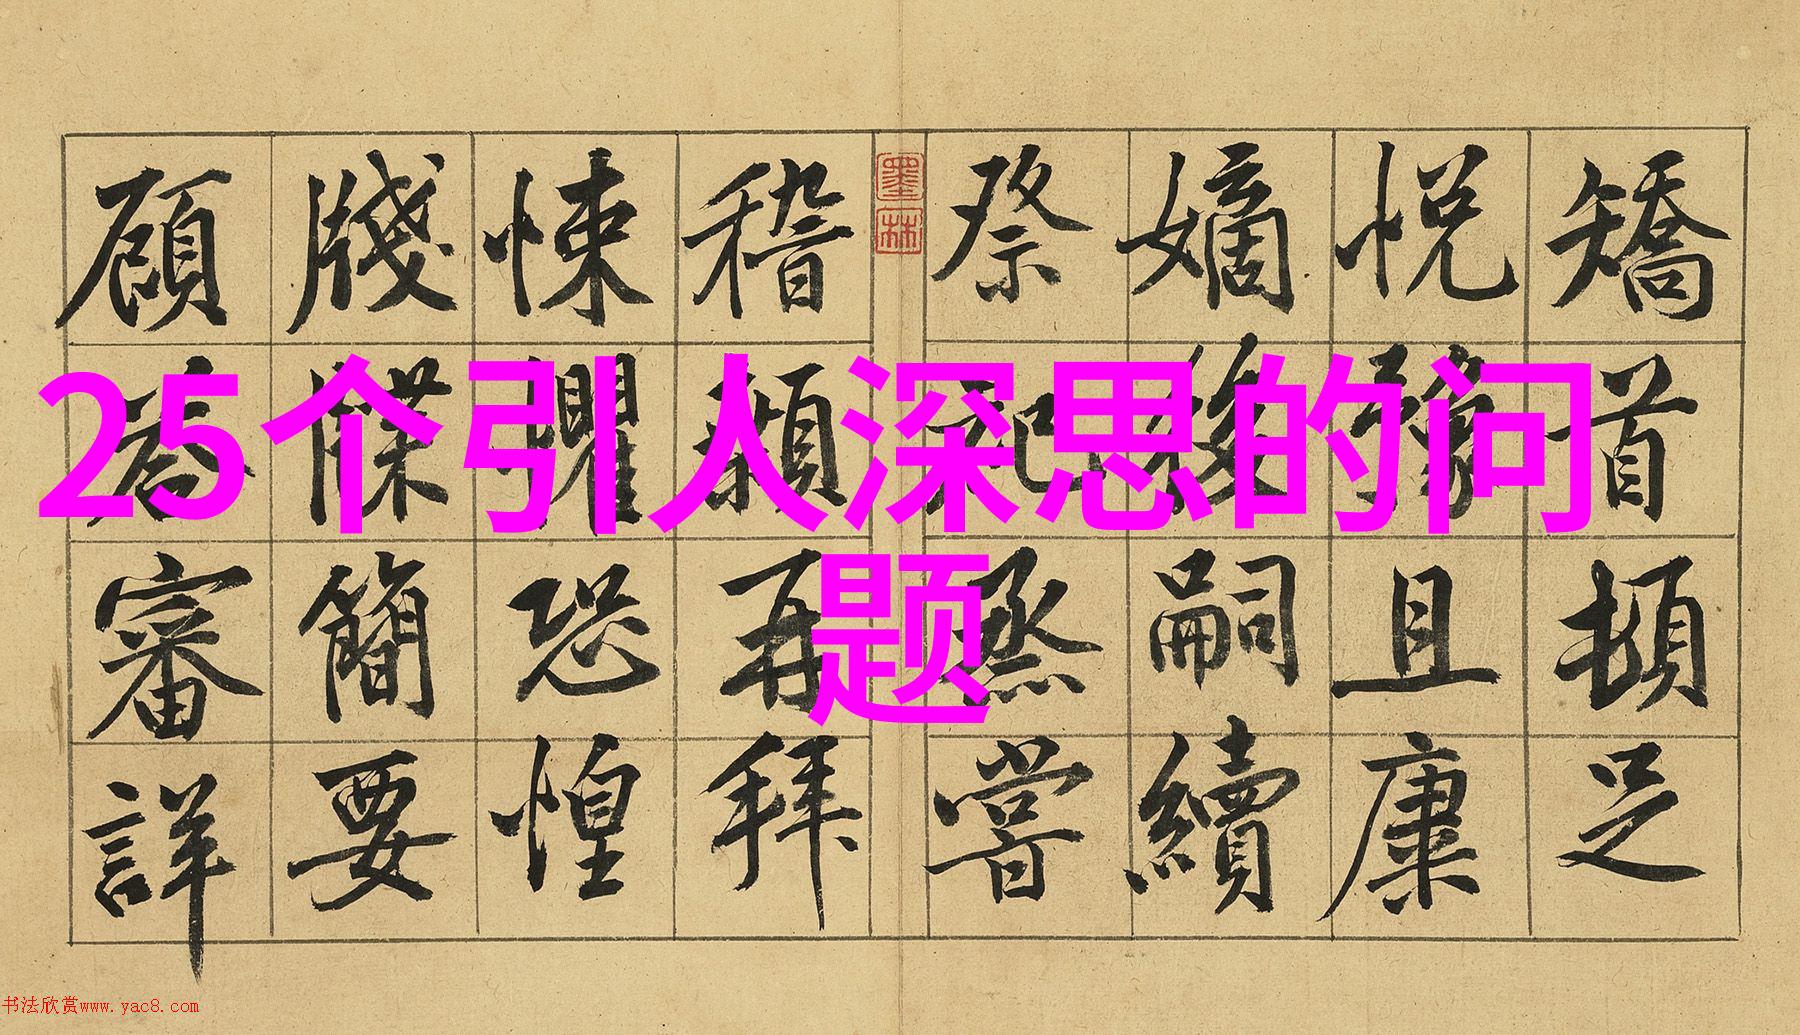 25个引人深思的问
题
矯首頓足
悦豫且康
嫡後嗣續
祭祀烝嘗
墨林
稽顙再拜
悚懼恐惶
牋牒簡要
顧荅審詳
书法欣赏www.yac8.com